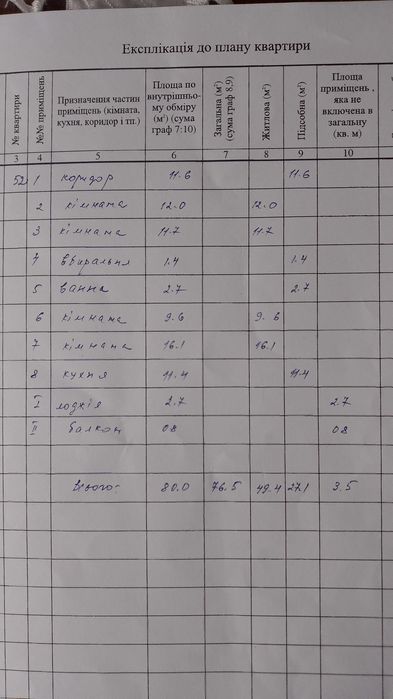 Експлікація до плану квартири
№ квартири №№ приміщень Призначення частин приміщень (кімната, кухня, коридор і тп.) Площа по внутрішньому обміру (м²) (сума граф 7:10) Загальна (м²) (сума граф 8,9) Житлова (м²) Підсобна (м²) Площа приміщень , яка не включена в загальну (кв. м)
3 4 5 6 7 8 9 10
52 1 коридор 11.6 11.6
2 кімната 12.0 12.0
3 кімната 11.7 11.7
4 вбиральня 1.4 1.4
5 ванна 2.7 2.7
6 кімната 9.6 9.6
7 кімната 16.1 16.1
8 кухня 11.4 11.4
I лоджія 2.7 2.7
II балкон 08 08
Всього: 80.0 76.5 49.4 27.1 3.5